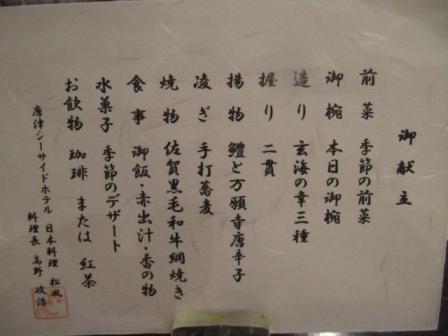 御献主
前菜 季節の前菜
御椀 本日の御椀
造り 玄海の幸三種
握り 二貫
揚物 鱧と万願寺唐辛子
凌ぎ 手打蕎麦
焼物 佐賀黒毛和牛網焼き
食事 御飯・赤出汁・香の物
水菓子 季節のデザート
お飲物 珈琲 または 紅茶
唐津シーサイドホテル 日本料理 松風
料理長 高野 政浩